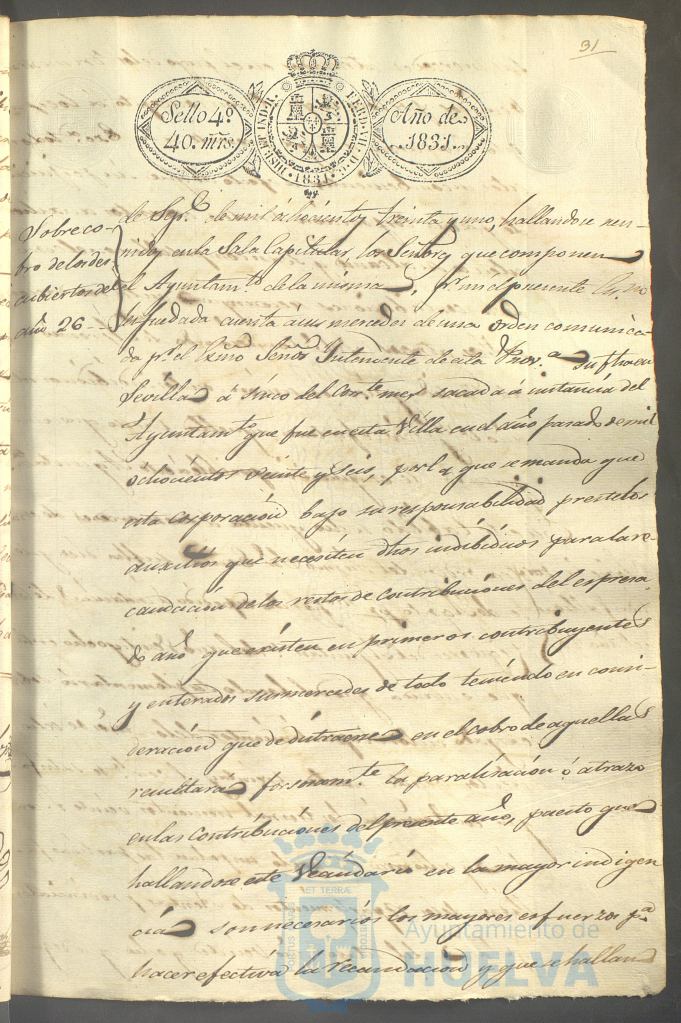 31
Sello 4º
40. mrs.
HISP. ET IND. R.
FERD. VII. D. G.
1831.
Año de
1831.
Sobre co-
bro de los des
cubiertos del
año 26
de Sepre. de mil ochocientos treinta y uno, hallandose reu-
nidos en la Sala Capitular los Señores que componen
el Ayuntamto. de la misma, pr. mi el presente
le fue dada cuenta á sus mercedes de una orden comunica-
da pr. el Señor Yntendente de esta Prova. su fha en
Sevilla á sinco del corte. mes sacada á instancia del
Ayuntamto. que fue en esta Villa en el año pasado de mil
ochocientos veinte y seis, por la que se manda que
esta corporación bajo su responsabilidad preste los
auxilios que necesiten dhos indibiduos para la re-
caudación de los restos de contribuciones del espresa-
do año que existen en primeros contribuyentes
y enterados sus mercedes de todo teniendo en consi-
deración que de en el cobro de aquellas
resultara forsosamte. la paralisación ó atrazo
en las contribuciones del presente año, puesto que
hallandose este Vecindario en la mayor indigen
cia son necesarios los mayores esfuerzos pa.
hacer efectiva la recaudacion y que se hallan
Ayuntamiento de
HUELVA